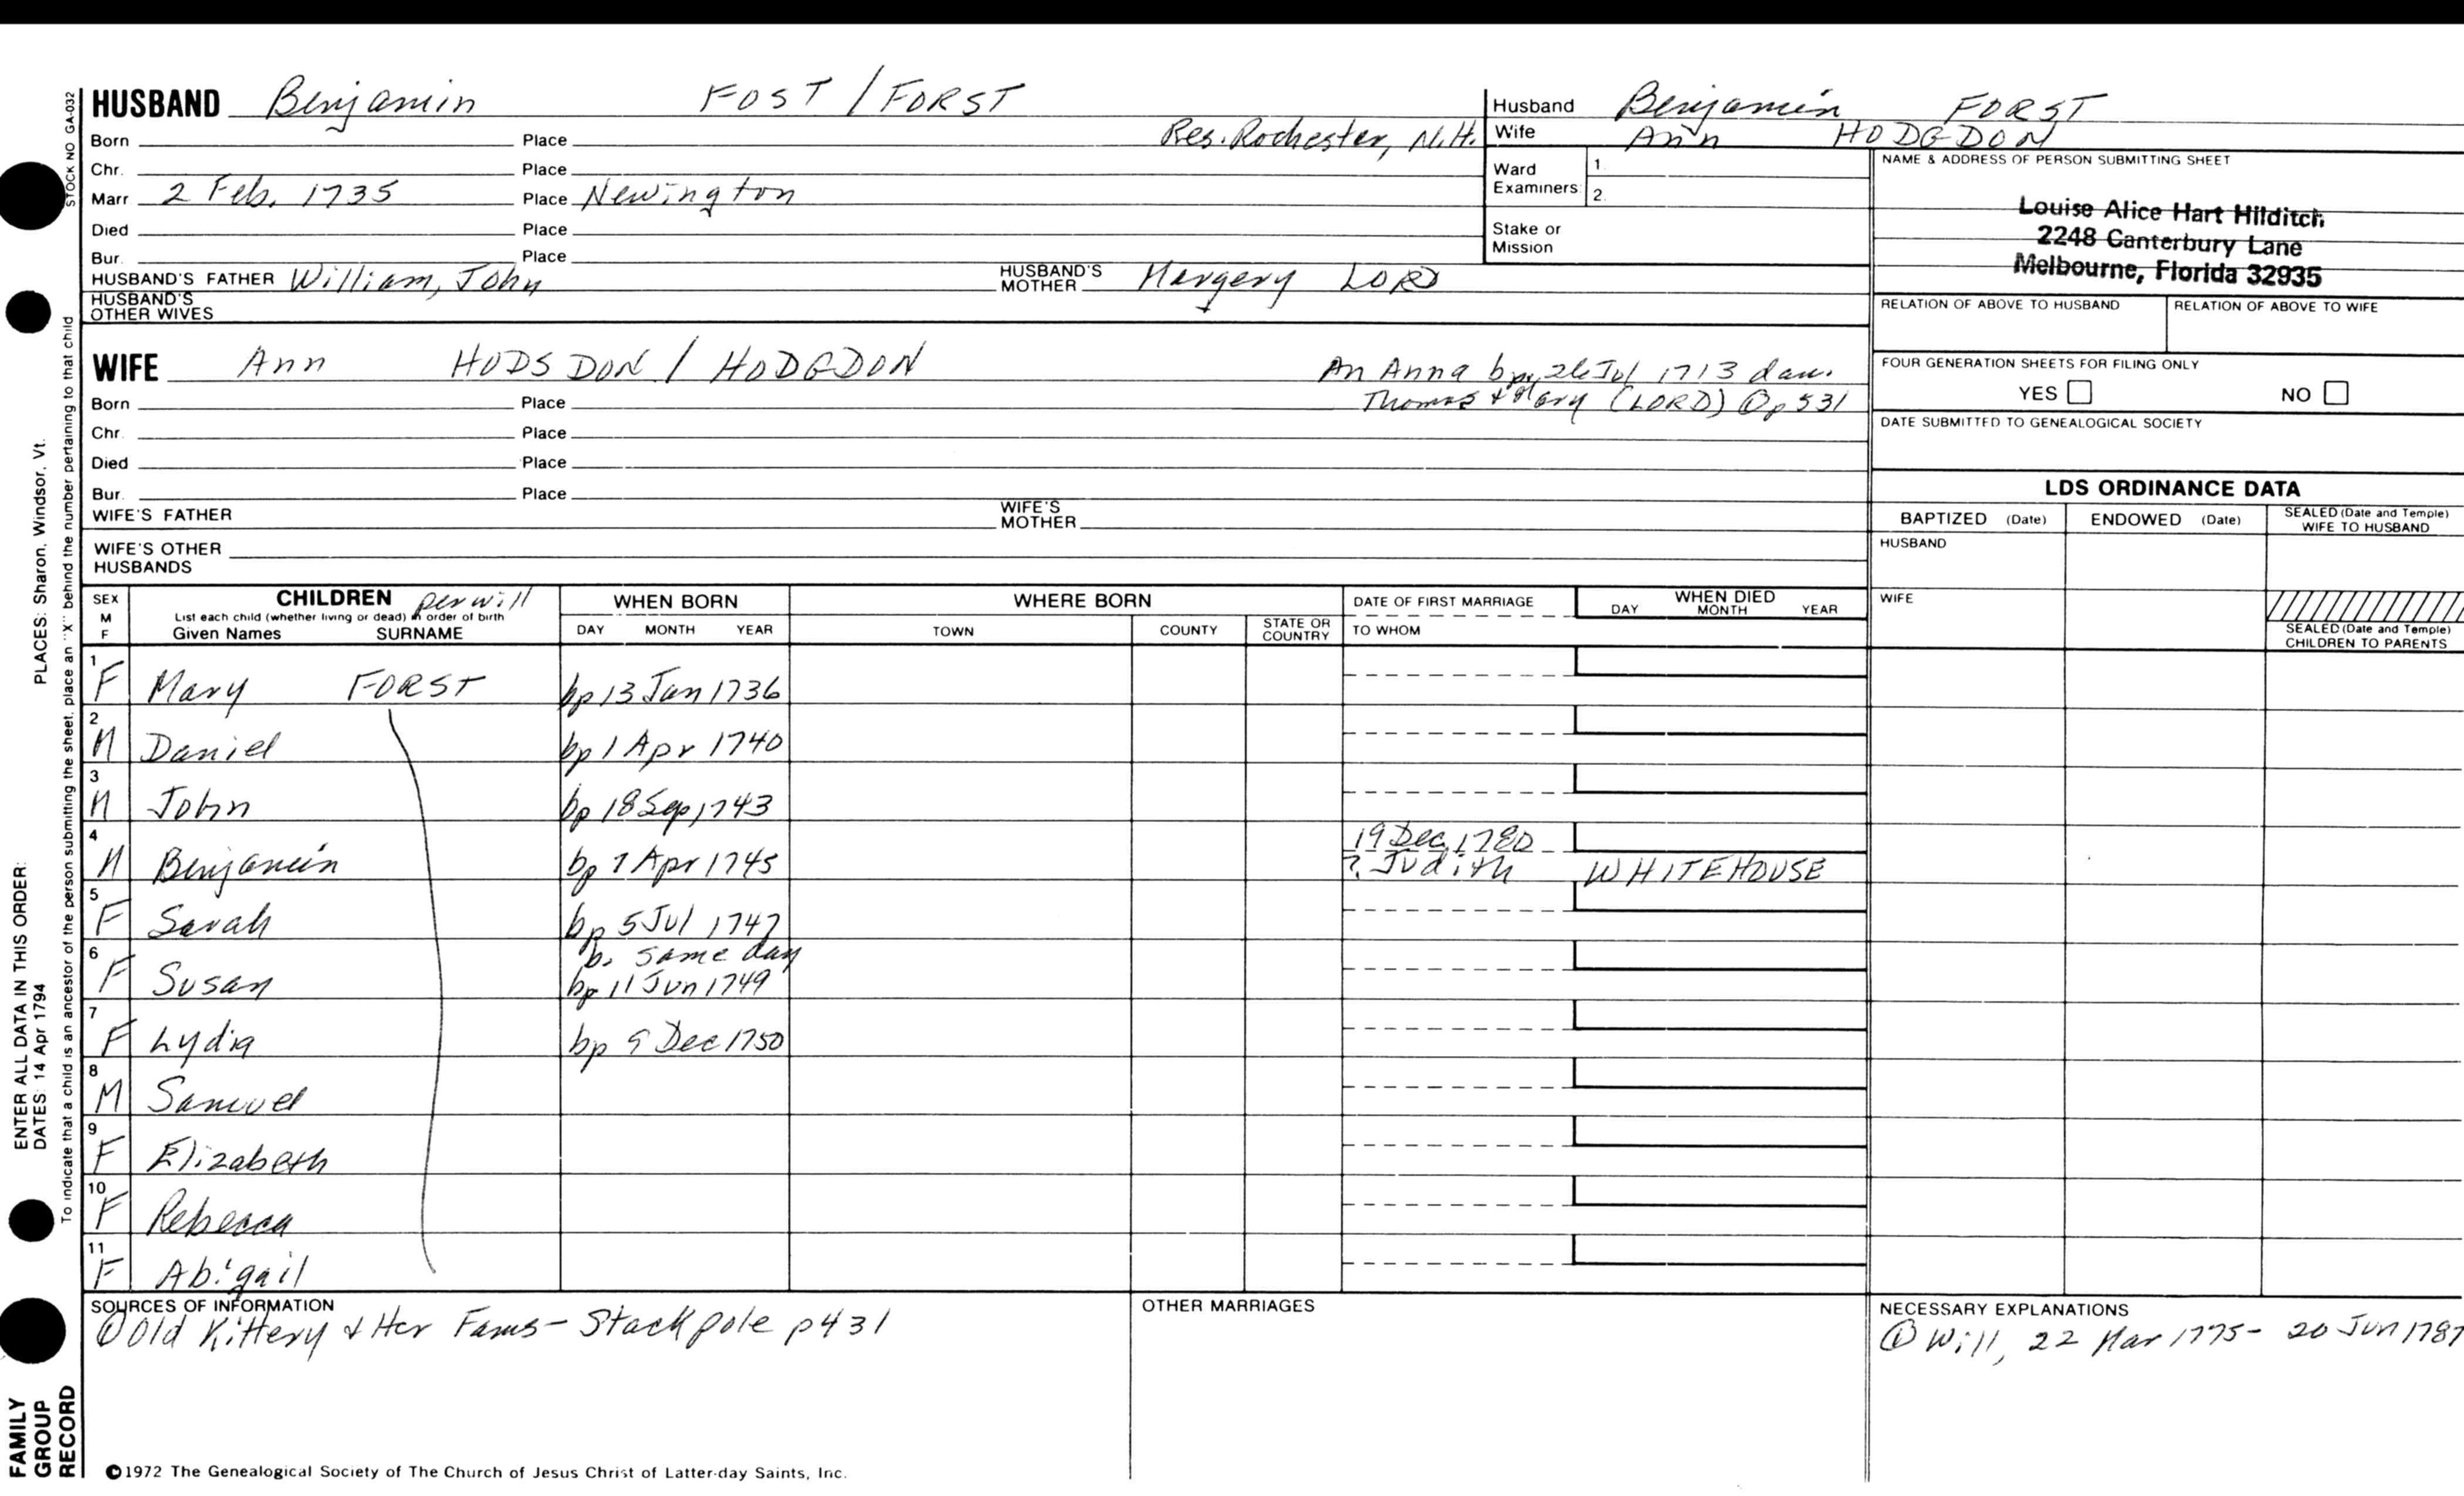 STOCK NO GA-032
HUSBAND Benjamin FOST / FORST
Res. Rochester, N.H.
Born Place
Chr. Place
Marr 2 Feb. 1735 Place Newington
Died Place
Bur. Place
HUSBAND'S FATHER William, John HUSBAND'S MOTHER Margery LORD
HUSBAND'S OTHER WIVES
Husband Benjamin FORST
Wife Ann HODGDON
Ward Examiners 1. 2.
Stake or Mission
NAME & ADDRESS OF PERSON SUBMITTING SHEET
Louise Alice Hart Hilditch
2248 Canterbury Lane
Melbourne, Florida 32935
RELATION OF ABOVE TO HUSBAND RELATION OF ABOVE TO WIFE
FOUR GENERATION SHEETS FOR FILING ONLY
YES NO
DATE SUBMITTED TO GENEALOGICAL SOCIETY
WIFE Ann HODSDON / HODGDON
An Anna bp. 26 Jul 1713 dau.
Thomas & Mary (LORD) ① p 531
Born Place
Chr. Place
Died Place
Bur. Place
WIFE'S FATHER WIFE'S MOTHER
WIFE'S OTHER HUSBANDS
LDS ORDINANCE DATA
BAPTIZED (Date) ENDOWED (Date) SEALED (Date and Temple) WIFE TO HUSBAND
HUSBAND
WIFE
SEALED (Date and Temple) CHILDREN TO PARENTS
SEX M F
CHILDREN per will
List each child (whether living or dead) in order of birth
Given Names SURNAME
WHEN BORN
DAY MONTH YEAR
WHERE BORN
TOWN COUNTY STATE OR COUNTRY
DATE OF FIRST MARRIAGE
TO WHOM
WHEN DIED
DAY MONTH YEAR
1 F Mary FORST bp 13 Jan 1736
2 M Daniel bp 1 Apr 1740
3 M John bp 18 Sep 1743
4 M Benjamin bp 7 Apr 1745 19 Dec 1780
? Judith WHITEHOUSE
5 F Sarah bp 5 Jul 1747
b. same day
6 F Susan bp 11 Jun 1749
7 F Lydia bp 9 Dec 1750
8 M Samuel
9 F Elizabeth
10 F Rebecca
11 F Abigail
SOURCES OF INFORMATION
① Old Kittery & Her Fams - Stackpole p431
OTHER MARRIAGES
NECESSARY EXPLANATIONS
① Will, 22 Mar 1775 - 20 Jun 1787
©1972 The Genealogical Society of The Church of Jesus Christ of Latter-day Saints, Inc.
ENTER ALL DATA IN THIS ORDER:
DATES: 14 Apr 1794
PLACES: Sharon, Windsor, Vt.
To indicate that a child is an ancestor of the person submitting the sheet, place an "X" behind the number pertaining to that child
FAMILY
GROUP
RECORD